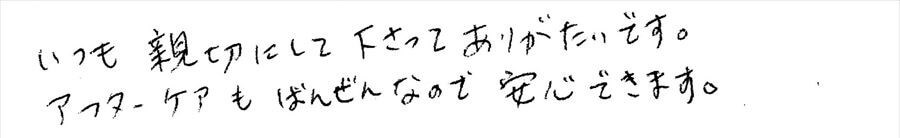 いつも親切にして下さってありがたいです。
アフターケアもばんぜんなので安心できます。